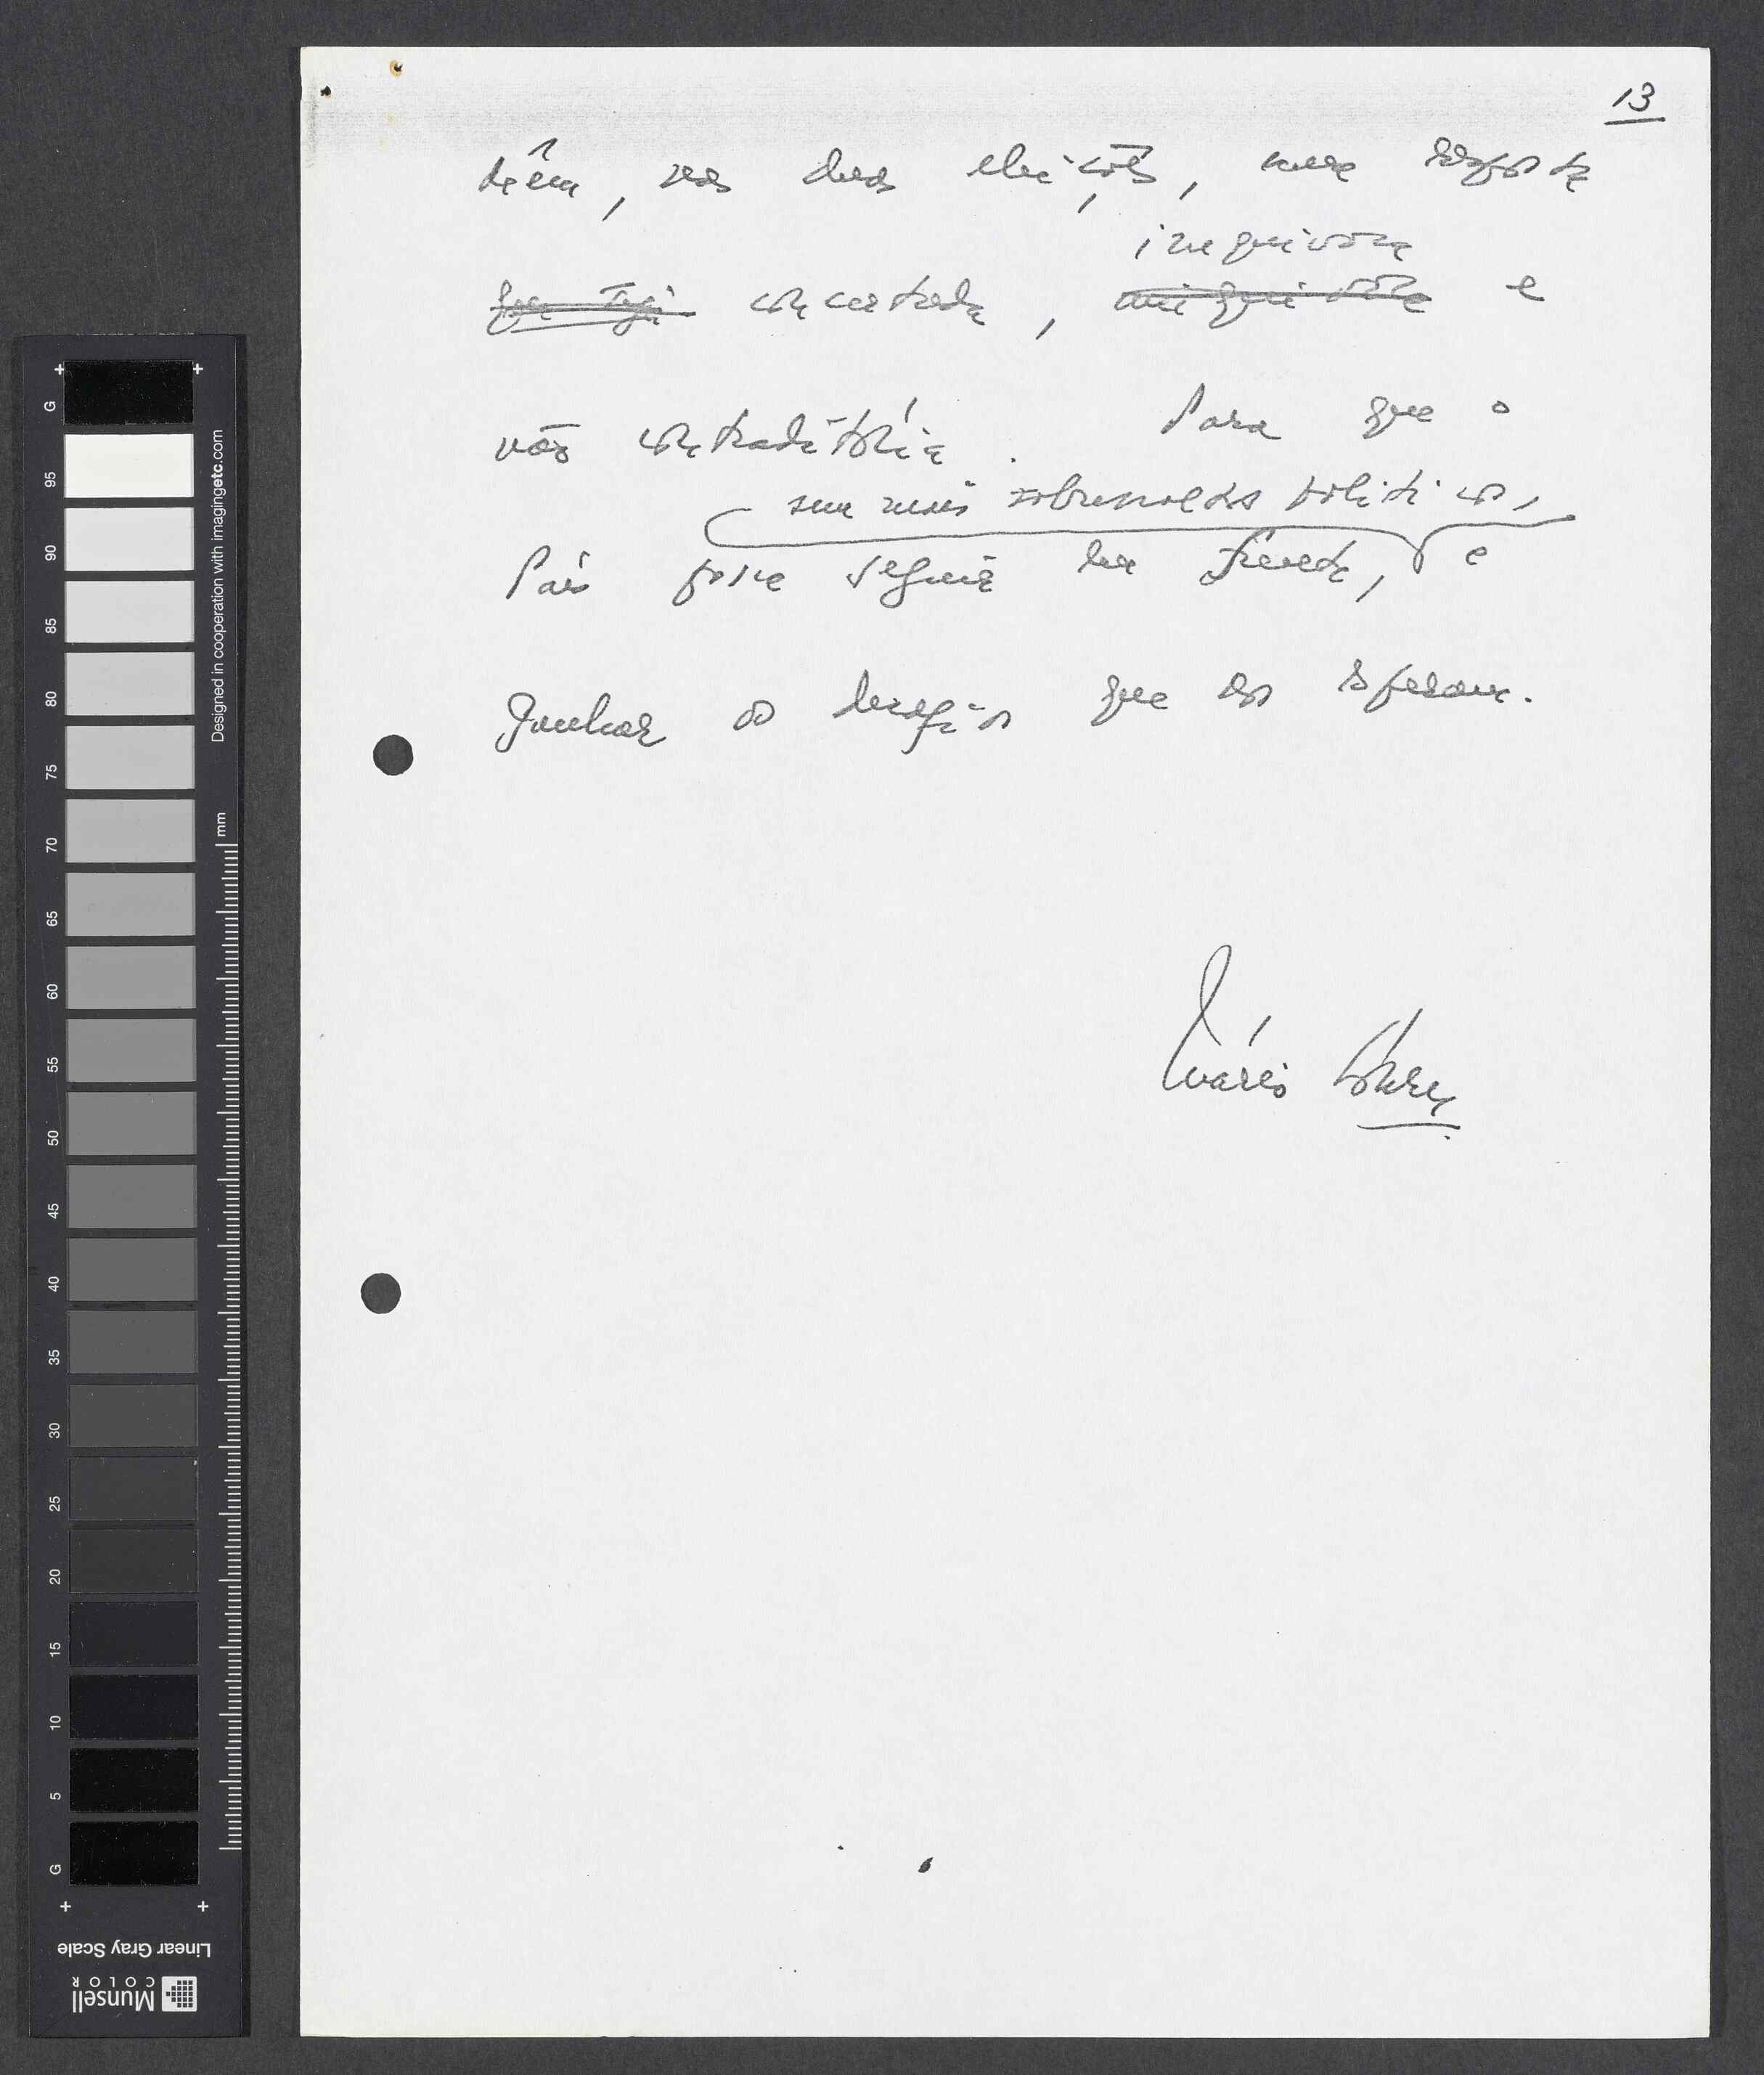 13
têm, nas duas eleições, uma resposta
inequívoca
concertada, e
não contraditória. Para que o
sem mais sobressaltos políticos,
País possa seguir em frente, e
Ganhar os desafios que os esperam.
Mário Soares
G
95
90
85
80
75
70
65
60
55
50
45
40
35
30
25
20
15
10
5
G
Designed in cooperation with imagingetc.com
mm
Linear Gray Scale
Munsell
COLOR